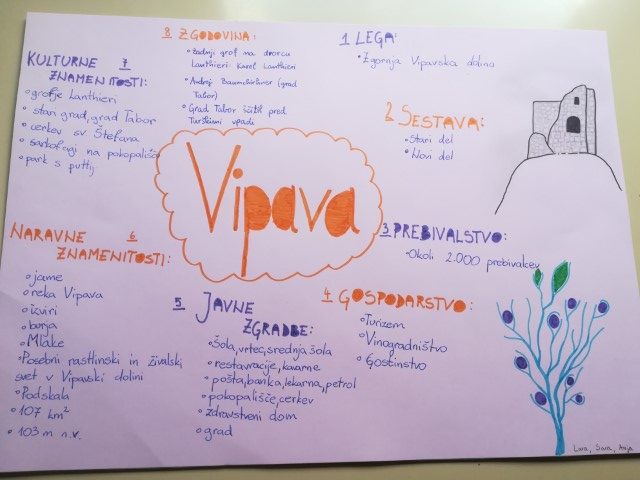 Vipava
1 LEGA:
Zgornja Vipavska dolina
2 SESTAVA:
Stari del
Novi del
3 PREBIVALSTVO:
Okoli 2.000 prebivalcev
4 GOSPODARSTVO:
Turizem
Vinogradništvo
Gostinstvo
5 JAVNE
ZGRADBE:
Šola, vrtec, srednja šola
restavracije, kavarne
pošta, banka, lekarna, petrol
pokopališče, cerkev
zdravstveni dom
grad
NARAVNE 6
ZNAMENITOSTI:
jame
reka Vipava
izviri
burja
Mlake
Posebni rastlinski in živalski
svet v Vipavski dolini
Podskala
107 km²
103 m n.v.
KULTURNE 7
ZNAMENITOSTI:
grofje Lanthieri
stari grad, grad Tabor
cerkev sv Štefana
sarkofagi na pokopališču
park s putti
8 ZGODOVINA:
Zadnji grof na dvorcu
Lanthieri Karel Lanthieri
Andrej Baumkircher (grad
Tabor)
Grad Tabor ščitil pred
Turškimi vpadi
Lara, Sara, Anja